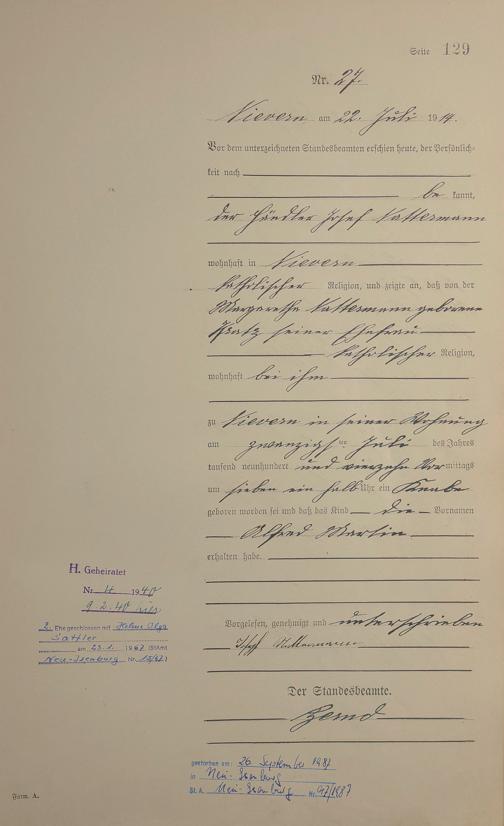 Seite 129
Nr. 27.
Nievern am 22. Juli 1914.
Vor dem unterzeichneten Standesbeamten erschien heute, der Persönlich-
keit nach
be kannt,
der Händler Josef Kattermann
wohnhaft in Nievern
katholischer Religion, und zeigte an, daß von der
Margaretha Kattermann geborene
seiner Ehefrau
katholischer Religion,
wohnhaft bei ihm
zu Nievern in seiner Wohnung
am zwanzigsten Juli des Jahres
tausend neunhundert und vierzehn Vormittags
um sieben ein halb Uhr ein Knabe
geboren worden sei und daß das Kind die Vornamen
Alfred Martin
erhalten habe.
Vorgelesen, genehmigt und unterschrieben
Der Standesbeamte.
H. Geheiratet
Nr. 4 1940
9.2.40
2. Ehe geschlossen mit Olga
Sattler
am 23.1. 1967 (StAmt
Neu-Isenburg Nr. )
gestorben am: 26 September 1987
in Neu-Isenburg
St. A. Neu-Isenburg Nr. 97/1987
Form. A.